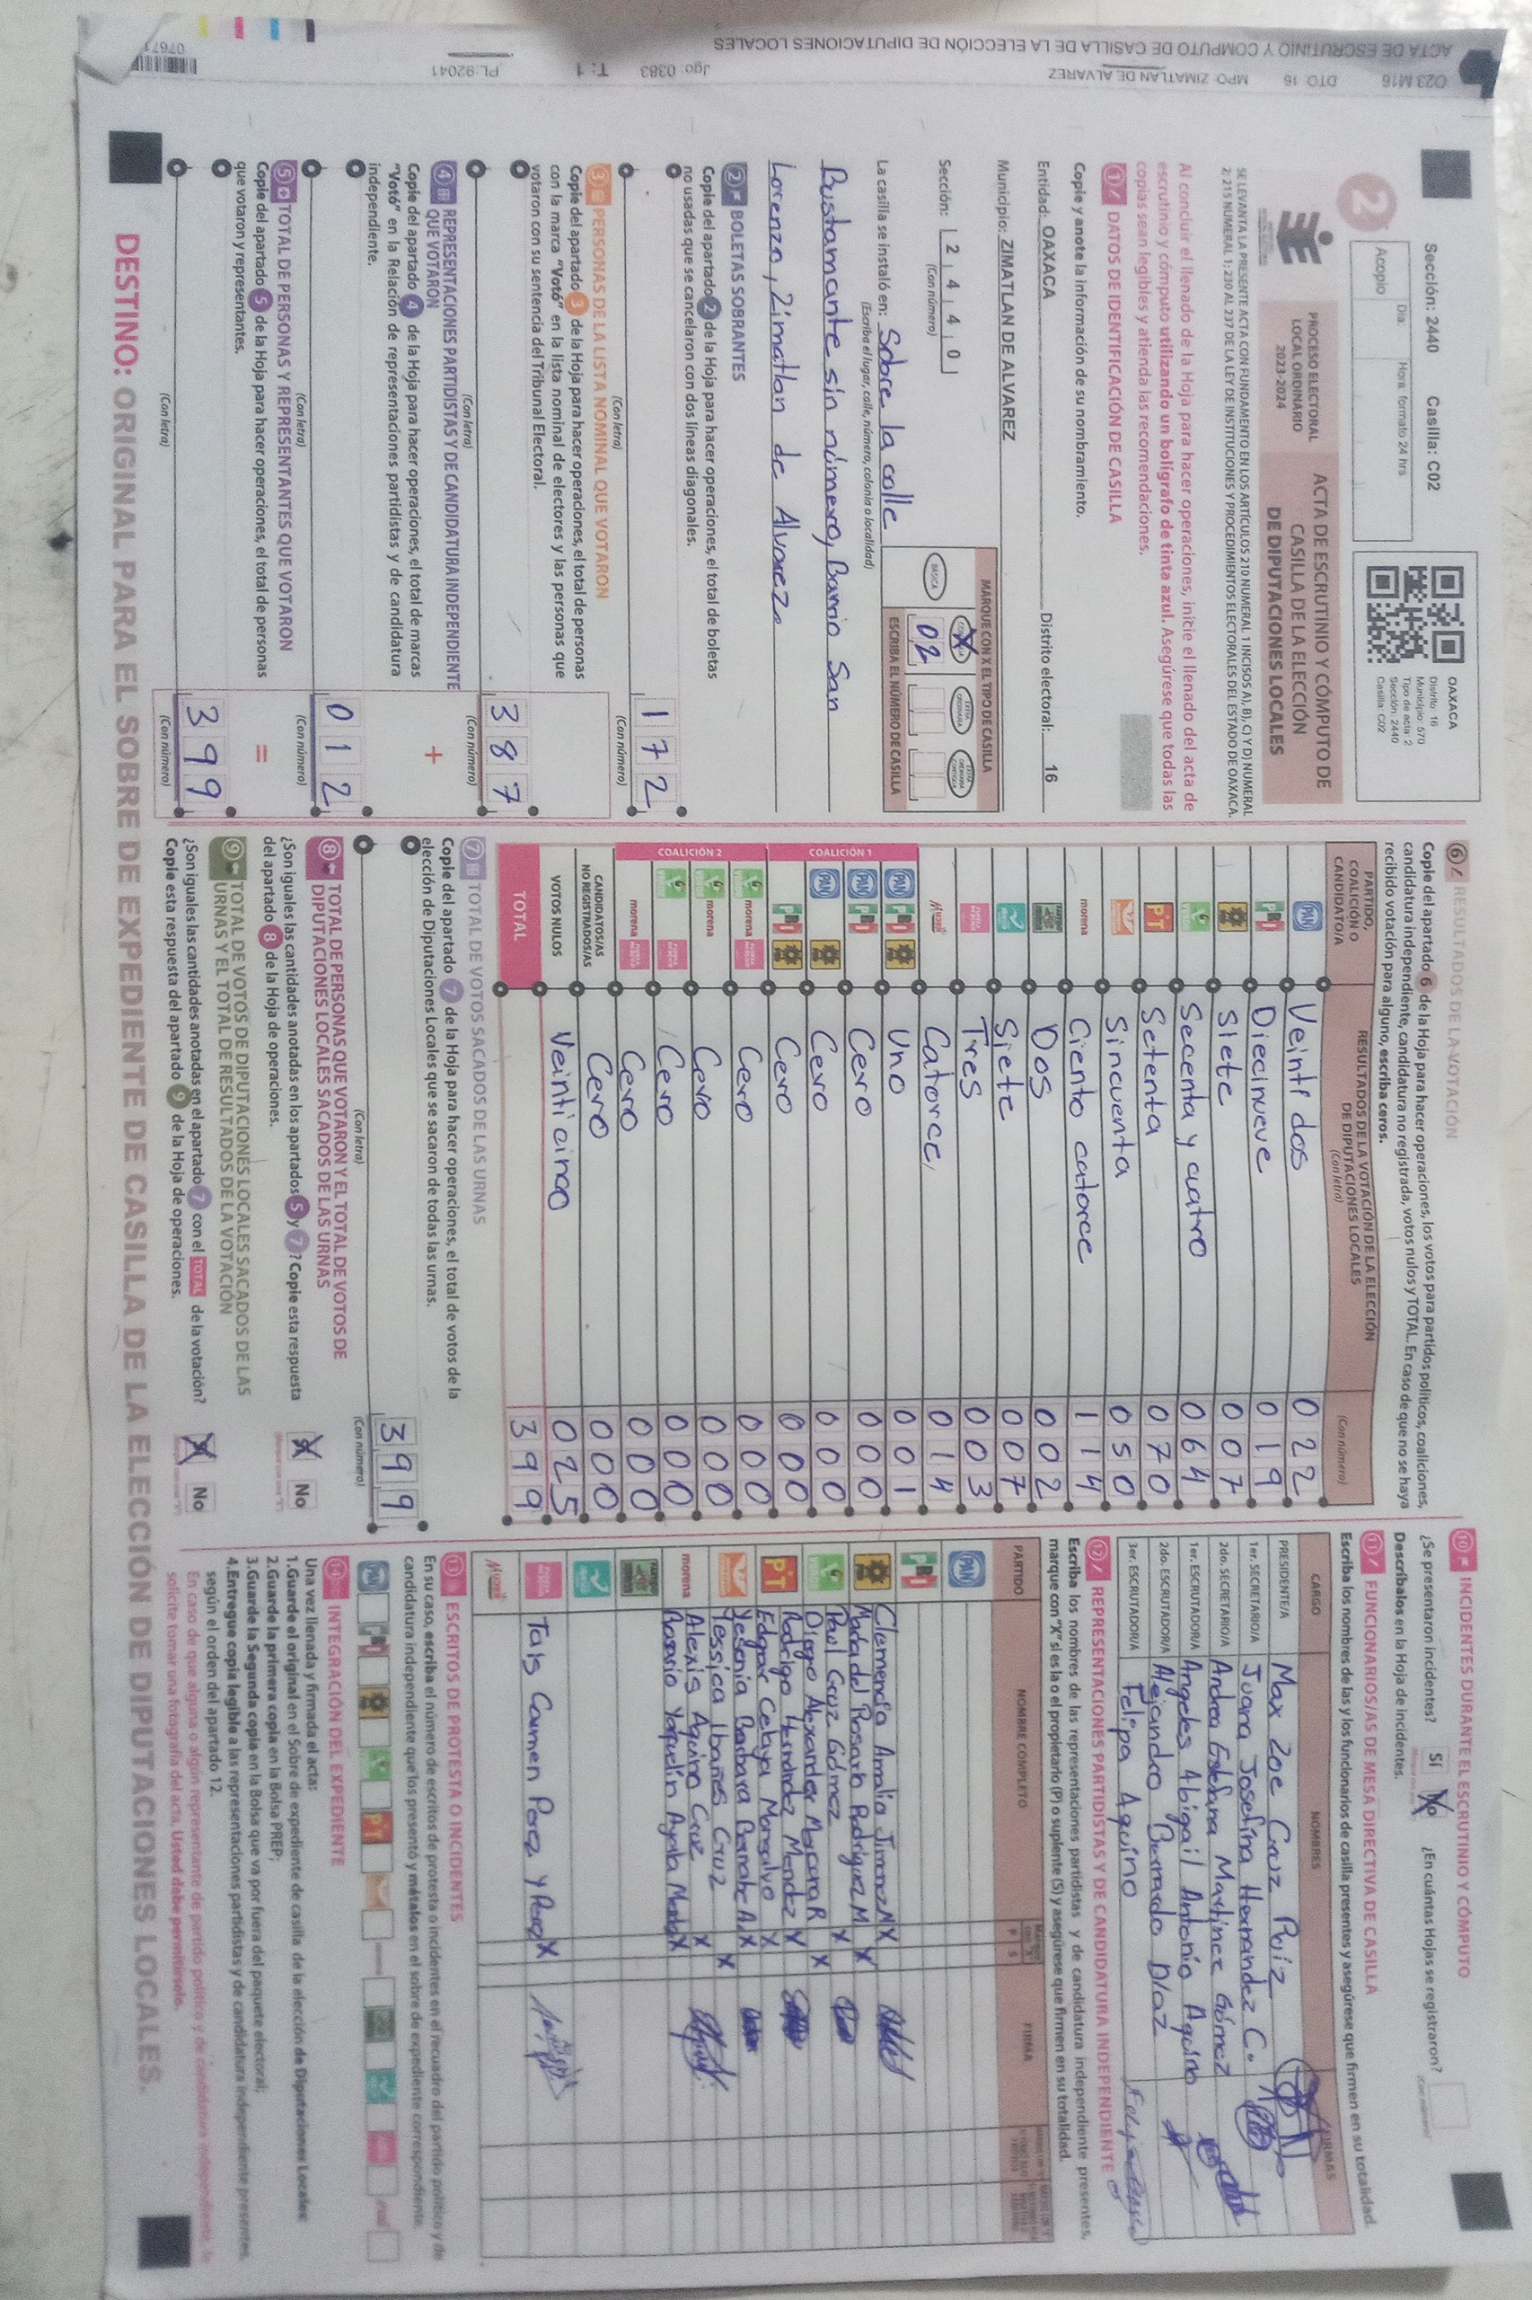 Sección: 2440 Casilla: C02
Día: Hora, formato 24 hrs
Acopio
OAXACA
Distrito: 16
Municipio: 570
Tipo de acta: 2
Sección: 2440
Casilla: C02
2
PROCESO ELECTORAL
LOCAL ORDINARIO
2023-2024
ACTA DE ESCRUTINIO Y CÓMPUTO DE
CASILLA DE LA ELECCIÓN
DE DIPUTACIONES LOCALES
SE LEVANTA LA PRESENTE ACTA CON FUNDAMENTO EN LOS ARTÍCULOS 210 NUMERAL 1 INCISOS A), B), C) Y D) NUMERAL
2; 215 NUMERAL 1; 230 AL 237 DE LA LEY DE INSTITUCIONES Y PROCEDIMIENTOS ELECTORALES DEL ESTADO DE OAXACA.
Al concluir el llenado de la Hoja para hacer operaciones, inicie el llenado del acta de
escrutinio y cómputo utilizando un bolígrafo de tinta azul. Asegúrese que todas las
copias sean legibles y atienda las recomendaciones.
1 DATOS DE IDENTIFICACIÓN DE CASILLA
Copie y anote la información de su nombramiento.
Entidad: OAXACA Distrito electoral: 16
Municipio: ZIMATLAN DE ALVAREZ
Sección: 2 4 4 0
(Con número)
MARQUE CON X EL TIPO DE CASILLA
BÁSICA X
ESCRIBA EL NÚMERO DE CASILLA
02
La casilla se instaló en: Sobre la calle
(Escriba el lugar, calle, número, colonia o localidad)
Bustamante sin número, Barrio San
Lorenzo, Zimatlan de Alvarez
2 BOLETAS SOBRANTES
Copie del apartado 2 de la Hoja para hacer operaciones, el total de boletas
no usadas que se cancelaron con dos líneas diagonales.
1 7 2
(Con letra) (Con número)
3 PERSONAS DE LA LISTA NOMINAL QUE VOTARON
Copie del apartado 3 de la Hoja para hacer operaciones, el total de personas
con la marca "Votó" en la lista nominal de electores y las personas que
votaron con su sentencia del Tribunal Electoral.
3 8 7
(Con letra) (Con número)
4 REPRESENTACIONES PARTIDISTAS Y DE CANDIDATURA INDEPENDIENTE
QUE VOTARON
+
Copie del apartado 4 de la Hoja para hacer operaciones, el total de marcas
"Votó" en la Relación de representaciones partidistas y de candidatura
independiente.
0 1 2
(Con letra) (Con número)
5 TOTAL DE PERSONAS Y REPRESENTANTES QUE VOTARON
=
Copie del apartado 5 de la Hoja para hacer operaciones, el total de personas
que votaron y representantes.
3 9 9
(Con letra) (Con número)
6 RESULTADOS DE LA VOTACIÓN
Copie del apartado 6 de la Hoja para hacer operaciones, los votos para partidos políticos, coaliciones,
candidatura independiente, candidatura no registrada, votos nulos y TOTAL. En caso de que no se haya
recibido votación para alguno, escriba ceros.
PARTIDO,
COALICIÓN O
CANDIDATO/A
RESULTADOS DE LA VOTACIÓN DE LA ELECCIÓN
DE DIPUTACIONES LOCALES
(Con letra) (Con número)
PAN Veinti dos 0 2 2
PRI Diecinueve 0 1 9
Siete 0 0 7
Secenta y cuatro 0 6 4
PT Setenta 0 7 0
Sincuenta 0 5 0
morena Ciento catorce 1 1 4
Dos 0 0 2
Siete 0 0 7
Tres 0 0 3
Catorce 0 1 4
COALICIÓN 1
PAN PRI Uno 0 0 1
PAN PRI Cero 0 0 0
PAN Cero 0 0 0
PRI Cero 0 0 0
COALICIÓN 2
morena Cero 0 0 0
morena Cero 0 0 0
Cero 0 0 0
morena Cero 0 0 0
CANDIDATOS/AS
NO REGISTRADOS/AS Cero 0 0 0
VOTOS NULOS Veinti cinco 0 2 5
TOTAL 3 9 9
7 TOTAL DE VOTOS SACADOS DE LAS URNAS
Copie del apartado 7 de la Hoja para hacer operaciones, el total de votos de la
elección de Diputaciones Locales que se sacaron de todas las urnas.
3 9 9
(Con letra) (Con número)
8 TOTAL DE PERSONAS QUE VOTARON Y EL TOTAL DE VOTOS DE
DIPUTACIONES LOCALES SACADOS DE LAS URNAS
¿Son iguales las cantidades anotadas en los apartados 5 y 7? Copie esta respuesta
del apartado 8 de la Hoja de operaciones.
X No
9 TOTAL DE VOTOS DE DIPUTACIONES LOCALES SACADOS DE LAS
URNAS Y EL TOTAL DE RESULTADOS DE LA VOTACIÓN
¿Son iguales las cantidades anotadas en el apartado 7 con el TOTAL de la votación?
Copie esta respuesta del apartado 9 de la Hoja de operaciones.
X No
10 INCIDENTES DURANTE EL ESCRUTINIO Y CÓMPUTO
¿Se presentaron incidentes? Sí No ¿En cuántas Hojas se registraron?
Descríbalos en la Hoja de incidentes.
11 FUNCIONARIOS/AS DE MESA DIRECTIVA DE CASILLA
Escriba los nombres de las y los funcionarios de casilla presentes y asegúrese que firmen en su totalidad.
CARGO NOMBRES FIRMAS
PRESIDENTE/A Max Zoe Cruz Ruiz
1er. SECRETARIO/A Juana Josefina Hernandez C.
2do. SECRETARIO/A Andrea Estefana Martinez Gómez
1er. ESCRUTADOR/A Angeles Abigail Antonio Aquino
2do. ESCRUTADOR/A Alejandro Bernardo Diaz
3er. ESCRUTADOR/A Felipa Aquino
12 REPRESENTACIONES PARTIDISTAS Y DE CANDIDATURA INDEPENDIENTE
Escriba los nombres de las representaciones partidistas y de candidatura independiente presentes,
marque con "X" si es la o el propietario (P) o suplente (S) y asegúrese que firmen en su totalidad.
PARTIDO NOMBRE COMPLETO P S FIRMA
PAN
PRI
Clemencia Amalia Jimenez N X
Maria del Rosario Rodriguez M X
Paul Cruz Gómez X
Diego Alexander R X
PT Rodrigo Hernández Mendez X
Edgar Celaya Monsalvo X
Yesenia Barbara Bernabe A. X
Yessica Ibañes Cruz X
Alexis Aquino Cruz X
morena Rosario Ayala X
Tais Carmen Perez y Perez X
13 ESCRITOS DE PROTESTA O INCIDENTES
En su caso, escriba el número de escritos de protesta o incidentes en el recuadro del partido político y de
candidatura independiente que los presentó y métalos en el sobre de expediente correspondiente.
14 INTEGRACIÓN DEL EXPEDIENTE
Una vez llenada y firmada el acta:
1.Guarde el original en el Sobre de expediente de casilla de la elección de Diputaciones Locales;
2.Guarde la primera copia en la Bolsa PREP;
3.Guarde la Segunda copia en la Bolsa que va por fuera del paquete electoral;
4.Entregue copia legible a las representaciones partidistas y de candidatura independiente presentes,
según el orden del apartado 12.
En caso de que alguna o algún representante de partido político y de candidatura independiente, le
solicite tomar una fotografía del acta, Usted debe permitírselo.
DESTINO: ORIGINAL PARA EL SOBRE DE EXPEDIENTE DE CASILLA DE LA ELECCIÓN DE DIPUTACIONES LOCALES.
O23 M16 DTO: 16 MPO: ZIMATLAN DE ALVAREZ Jgo: 0383 T: 1 PL:92041
ACTA DE ESCRUTINIO Y COMPUTO DE CASILLA DE LA ELECCIÓN DE DIPUTACIONES LOCALES
07671